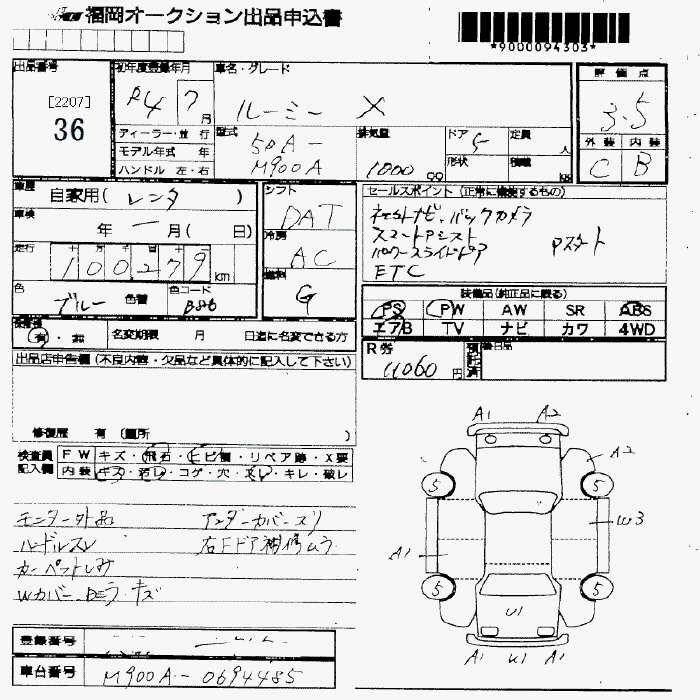 福岡オークション出品申込書
*9000094303*
出品番号
[2207]
36
初年度登録年月
R4 7 月
車名・グレード
ルーミー X
評価点
3.5
外装 内装
C B
ディーラー・並行
モデル年式 年
ハンドル 左・右
型式
50A-
M900A
排気量
1000 CC
ドア 5
形状
定員 人
積載 KG
車歴
自家用(レンタ)
車検
年 一 月( 日)
走行
100279 km
色
ブルー 色替
色コード
B86
シフト
DAT
冷房
AC
燃料
G
セールスポイント(正常に作動するもの)
社外ナビ、バックカメラ
スマートアシスト
パワースライドドア Pスタート
ETC
装備品(純正品に限る)
PS PW AW SR ABS
エアB TV ナビ カワ 4WD
有・無 名変期限 月 日迄に名変できる方
R券
11060 円
預託済
後日品
出品店申告欄(不良内容・欠品など具体的に記入して下さい)
修復歴 有(箇所 )
検査員
記入欄
FW キズ・飛石・ヒビ・リペア跡・X要
内装 キズ・汚レ・コゲ・穴・スレ・キレ・破レ
モニター外品 アンダーカバースリ
ハンドルスレ 右Fドア補修ムラ
カーペットしみ
Wカバー キズ
A1 A2
A2
5 5
W3
A1
5 5
U1
A1 U1 A1
登録番号
車台番号
M900A-0694485